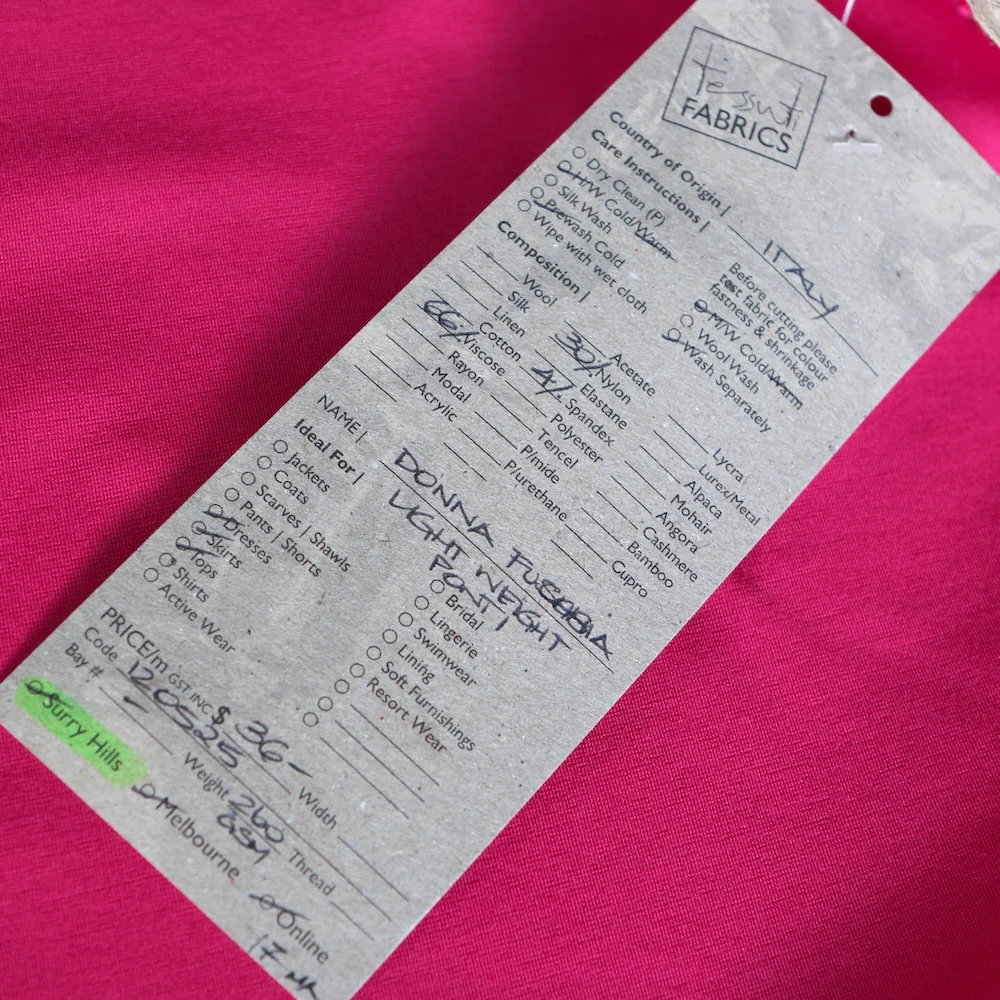 tessuti
FABRICS
Country of Origin | ITALY
Care Instructions |
Dry Clean (P)
H/W Cold/Warm
Silk Wash
Prewash Cold
Wipe with wet cloth
Before cutting please
test fabric for colour
fastness & shrinkage
M/W Cold/Warm
Wool Wash
Wash Separately
Composition |
Wool
Silk
Linen
Cotton
66% Viscose
Rayon
Modal
Acrylic
Acetate
30% Nylon
Elastane
4% Spandex
Polyester
Tencel
P/mide
P/urethane
Lycra
Lurex/Metal
Alpaca
Mohair
Angora
Cashmere
Bamboo
Cupro
NAME | DONNA FUSCHIA
LIGHT WEIGHT
PONTI
Ideal For |
Jackets
Coats
Scarves | Shawls
Pants | Shorts
Dresses
Skirts
Tops
Shirts
Active Wear
Bridal
Lingerie
Swimwear
Lining
Soft Furnishings
Resort Wear
PRICE/m GST INC $ 36-
Code 120525
Width
Bay #
Weight 260
GSM
Thread
Surry Hills
Melbourne
Online
17